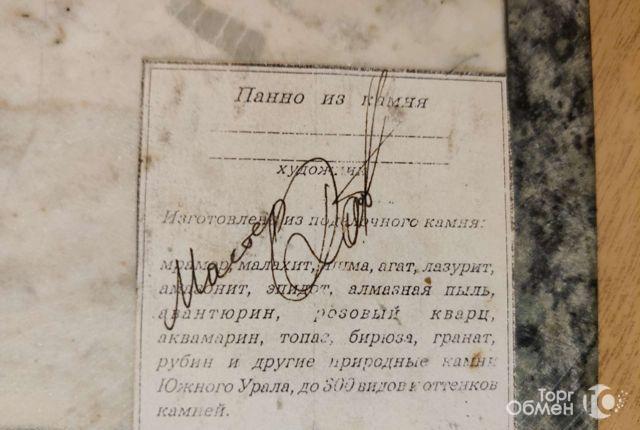 Панно из камня
художник
Мастер
Изготовлено из поделочного камня:
мрамор, малахит, яшма, агат, лазурит,
амазонит, эпидот, алмазная пыль,
авантюрин, розовый кварц,
аквамарин, топаз, бирюза, гранат,
рубин и другие природные камни
Южного Урала, до 300 видов и оттенков
камней.
Торг
Обмен